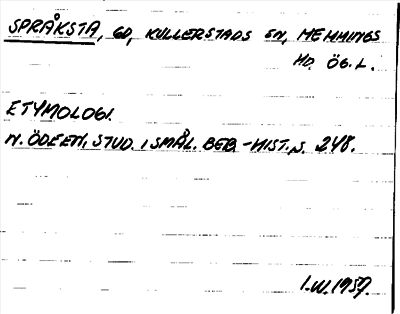 SPRÅKSTA, GD, KULLERSTADS SN, MEMMINGS
HD. ÖG. L.
ETYMOLOGI.
N. ÖDEEN, STUD. I SMÅL. BEB.-HIST. s. 248.
I.W. 1957.